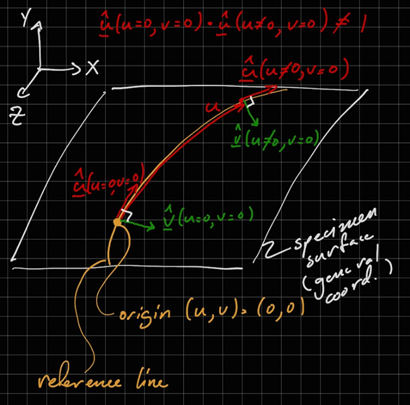 û(u=0,v=0)·û(u≠0,v=0)≠1
Y
X
Z
û(u≠0,v=0)
u
v̂(u≠0,v=0)
û(u=0,v=0)
v̂(u=0,v=0)
specimen
surface
(general
coord.)
origin (u,v)=(0,0)
reference line